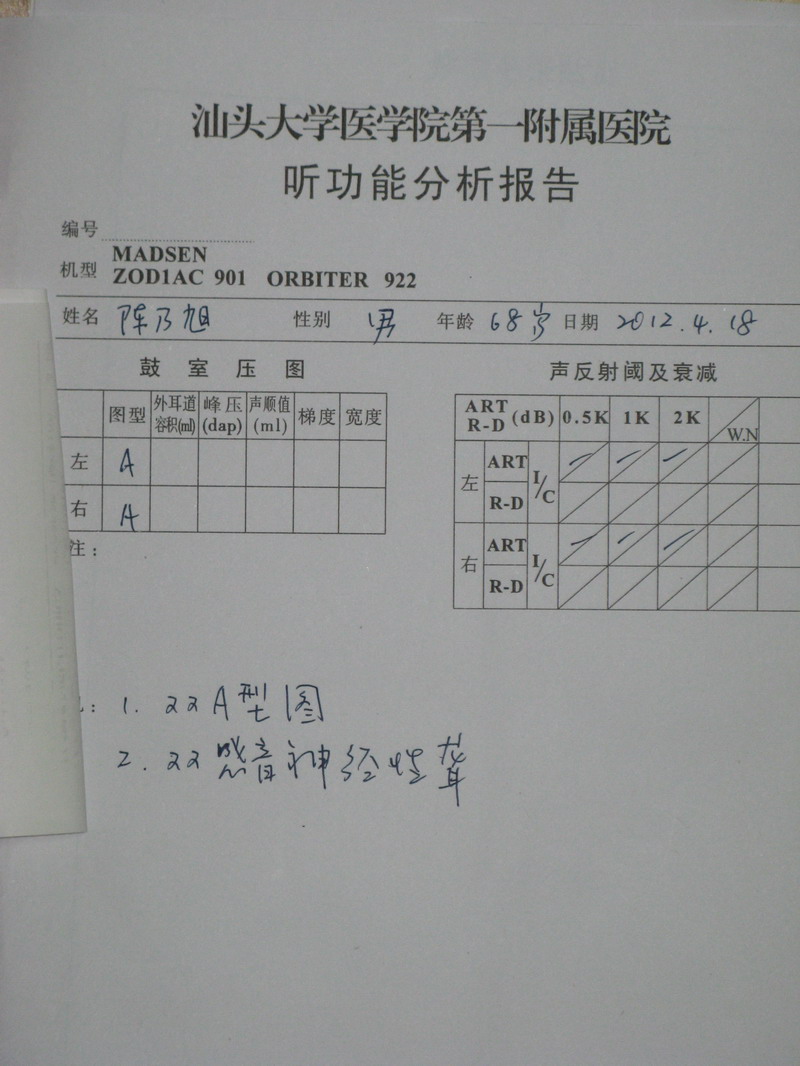 汕头大学医学院第一附属医院
听功能分析报告
编号
机型 MADSEN
ZOD1AC 901 ORBITER 922
姓名 陈乃旭 性别 男 年龄 68岁 日期 2012.4.18
鼓室压图
图型 外耳道容积(ml) 峰压(dap) 声顺值(ml) 梯度 宽度
左 A
右 A
注：
声反射阈及衰减
ART R-D (dB) 0.5K 1K 2K W.N
左 ART I/C — — —
R-D
右 ART I/C — — —
R-D
：1. 双A型图
2. 双感音神经性聋